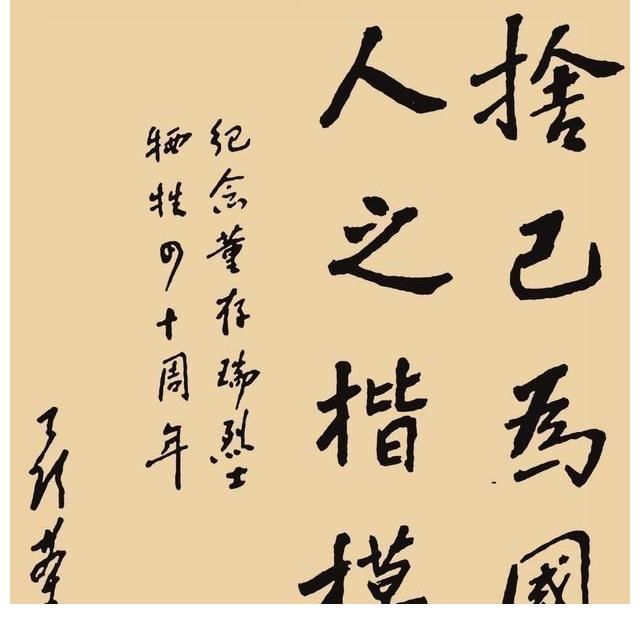 捨己為國
人之楷模
纪念董存瑞烈士
牺牲四十周年